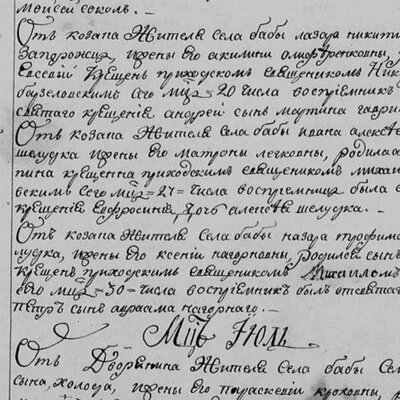 Моисей соколъ. –
Отъ козака Жителя Села бабы лазара никити
Запорожца, жены Его акилини
Евсевий Крещенъ приходскимъ священикомъ Ник
базилевскимъ Сего мца = 20 числа восприемникъ
святаго крещения андрей сынъ мартина гаври
Отъ козака Жителя Села бабы ивана алексе
шелудка жены Его матроны легковны, родилас
пина крещенна приходскимъ священикомъ михаи
вскимъ Сего мца = 27 = числа восприемница была
крещения Евфросиния, дочь алексея шелудка. –
Отъ козака Жителя Села бабы назара трофимо
лудка, жены Его ксении нагорновны, родился сынъ
Крещенъ приходскимъ священикомъ Михаиломъ
его мца = 30 = числа восприемникъ былъ отсвятаго
петръ сынъ авраама нагорнаго. –
Мцъ Июль
Отъ Дворянина Жителя Села бабы Сем
сына, жены Его параскевии